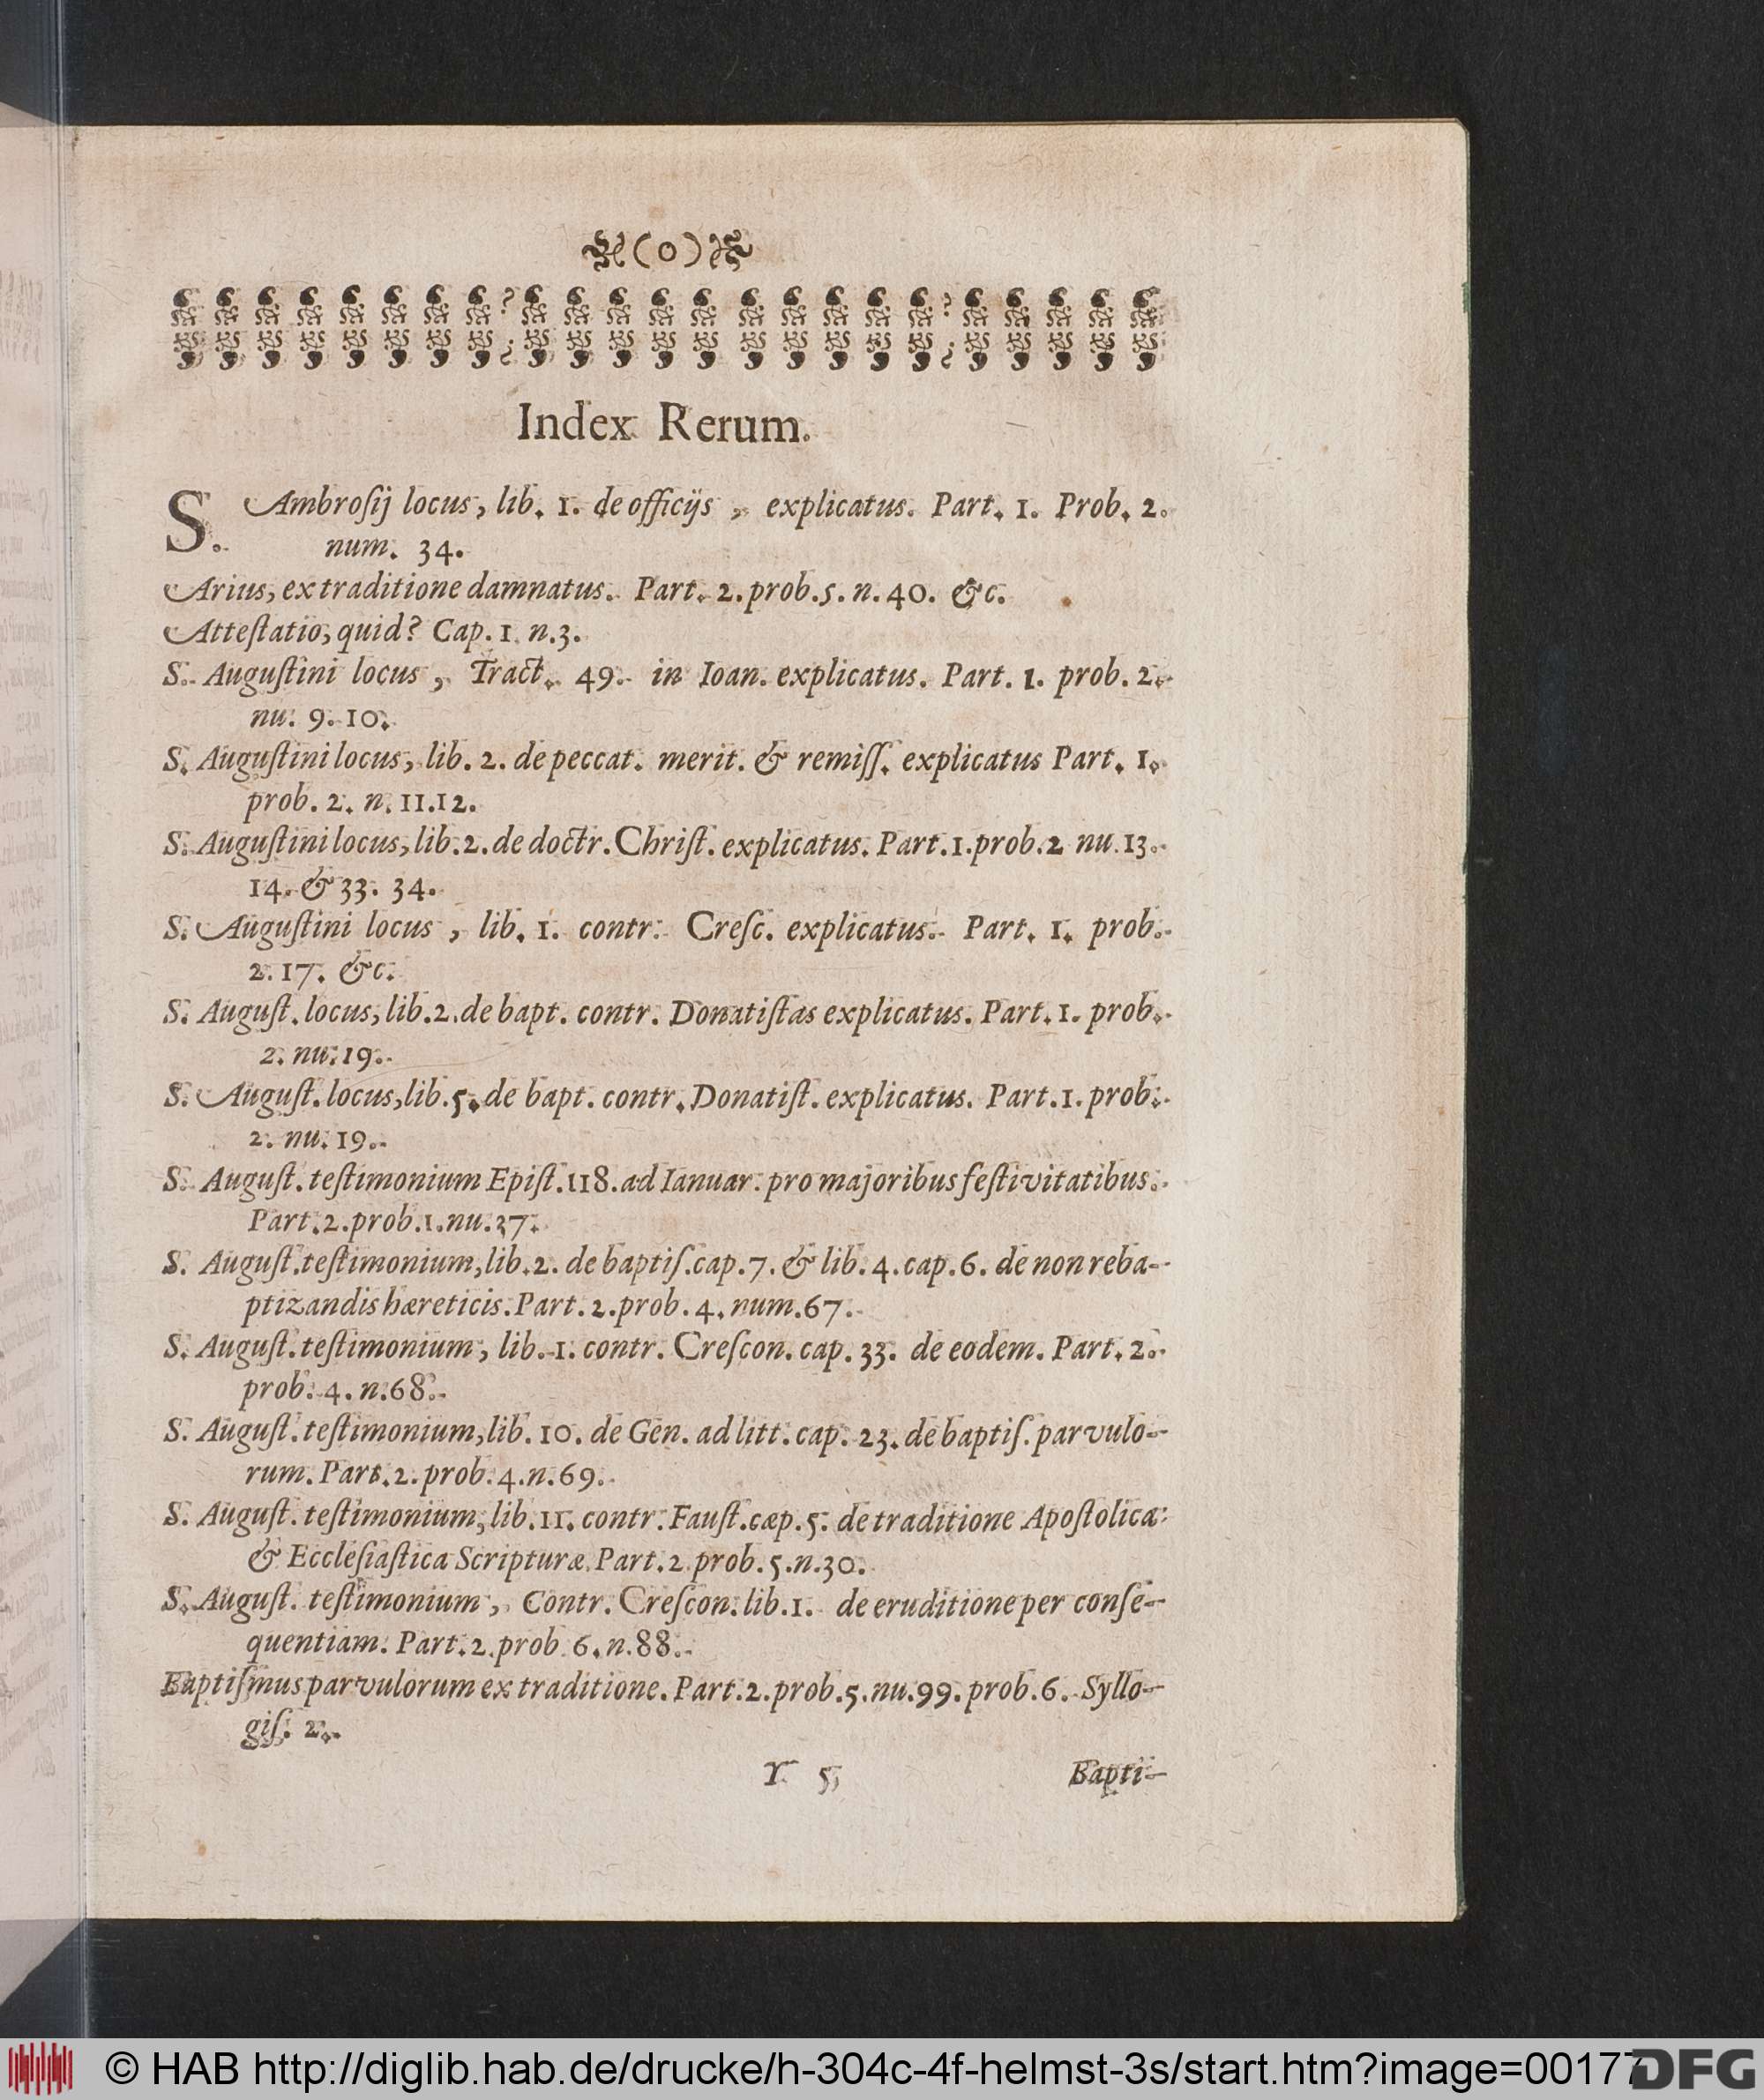 (o)
Index Rerum.
S. Ambroſij locus, lib. 1. de officijs, explicatus. Part. 1. Prob. 2.
num. 34.
Arius, ex traditione damnatus. Part. 2. prob. 5. n. 40. &c.
Atteſtatio, quid? Cap. 1. n. 3.
S. Auguſtini locus, Tract. 49. in Ioan. explicatus. Part. 1. prob. 2.
nu. 9. 10.
S. Auguſtini locus, lib. 2. de peccat. merit. & remiſſ. explicatus Part. 1.
prob. 2. n. 11. 12.
S. Auguſtini locus, lib. 2. de doctr. Chriſt. explicatus. Part. 1. prob. 2 nu. 13.
14. & 33. 34.
S. Auguſtini locus, lib. 1. contr. Creſc. explicatus. Part. 1. prob.
2. 17. &c.
S. Auguſt. locus, lib. 2. de bapt. contr. Donatiſtas explicatus. Part. 1. prob.
2. nu. 19.
S. Auguſt. locus, lib. 5. de bapt. contr. Donatiſt. explicatus. Part. 1. prob.
2. nu. 19.
S. Auguſt. teſtimonium Epiſt. 118. ad Ianuar. pro majoribus feſtivitatibus.
Part. 2. prob. 1. nu. 37.
S. Auguſt. teſtimonium, lib. 2. de baptiſ. cap. 7. & lib. 4. cap. 6. de non reba-
ptizandis hæreticis. Part. 2. prob. 4. num. 67.
S. Auguſt. teſtimonium, lib. 1. contr. Creſcon. cap. 33. de eodem. Part. 2.
prob. 4. n. 68.
S. Auguſt. teſtimonium, lib. 10. de Gen. ad litt. cap. 23. de baptiſ. parvulo-
rum. Part. 2. prob. 4. n. 69.
S. Auguſt. teſtimonium, lib. 11. contr. Fauſt. cæp. 5. de traditione Apoſtolica
& Eccleſiaſtica Scripturæ. Part. 2. prob. 5. n. 30.
S. Auguſt. teſtimonium, Contr. Creſcon. lib. 1. de eruditione per conſe-
quentiam. Part. 2. prob. 6. n. 88.
Baptiſmus parvulorum ex traditione. Part. 2. prob. 5. nu. 99. prob. 6. Syllo-
giſ. 2.
Y 5 Bapti-
© HAB http://diglib.hab.de/drucke/h-304c-4f-helmst-3s/start.htm?image=00177
DFG